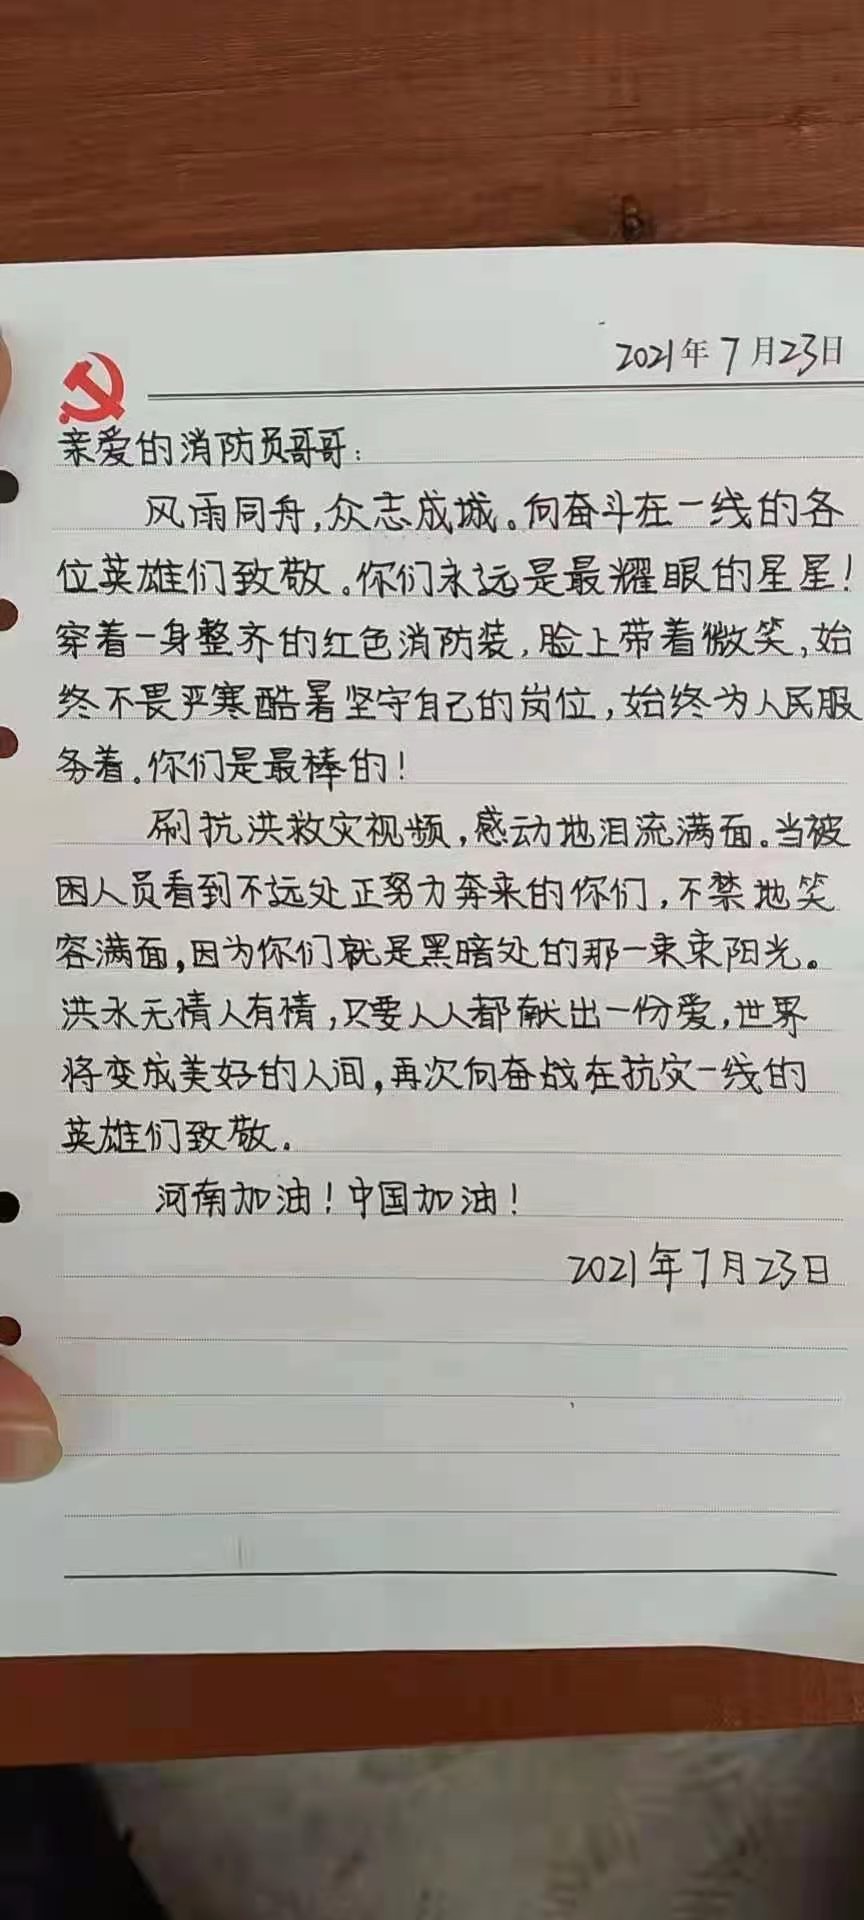 2021年7月23日
亲爱的消防员哥哥：
风雨同舟，众志成城。向奋斗在一线的各
位英雄们致敬。你们永远是最耀眼的星星！
穿着一身整齐的红色消防装，脸上带着微笑，始
终不畏严寒酷暑坚守自己的岗位，始终为人民服
务着。你们是最棒的！
刷抗洪救灾视频，感动地泪流满面。当被
困人员看到不远处正努力奔来的你们，不禁地笑
容满面，因为你们就是黑暗处的那一束束阳光。
洪水无情人有情，只要人人都献出一份爱，世界
将变成美好的人间，再次向奋战在抗灾一线的
英雄们致敬。
河南加油！中国加油！
2021年7月23日